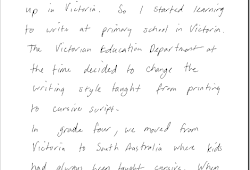 up in Victoria. So I started learning
to write at primary school in Victoria.
The Victorian Education Department at
the time decided to change the
writing style taught from printing
to cursive script.
In grade four, we moved from
Victoria to South Australia where kids
had always been taught cursive. When